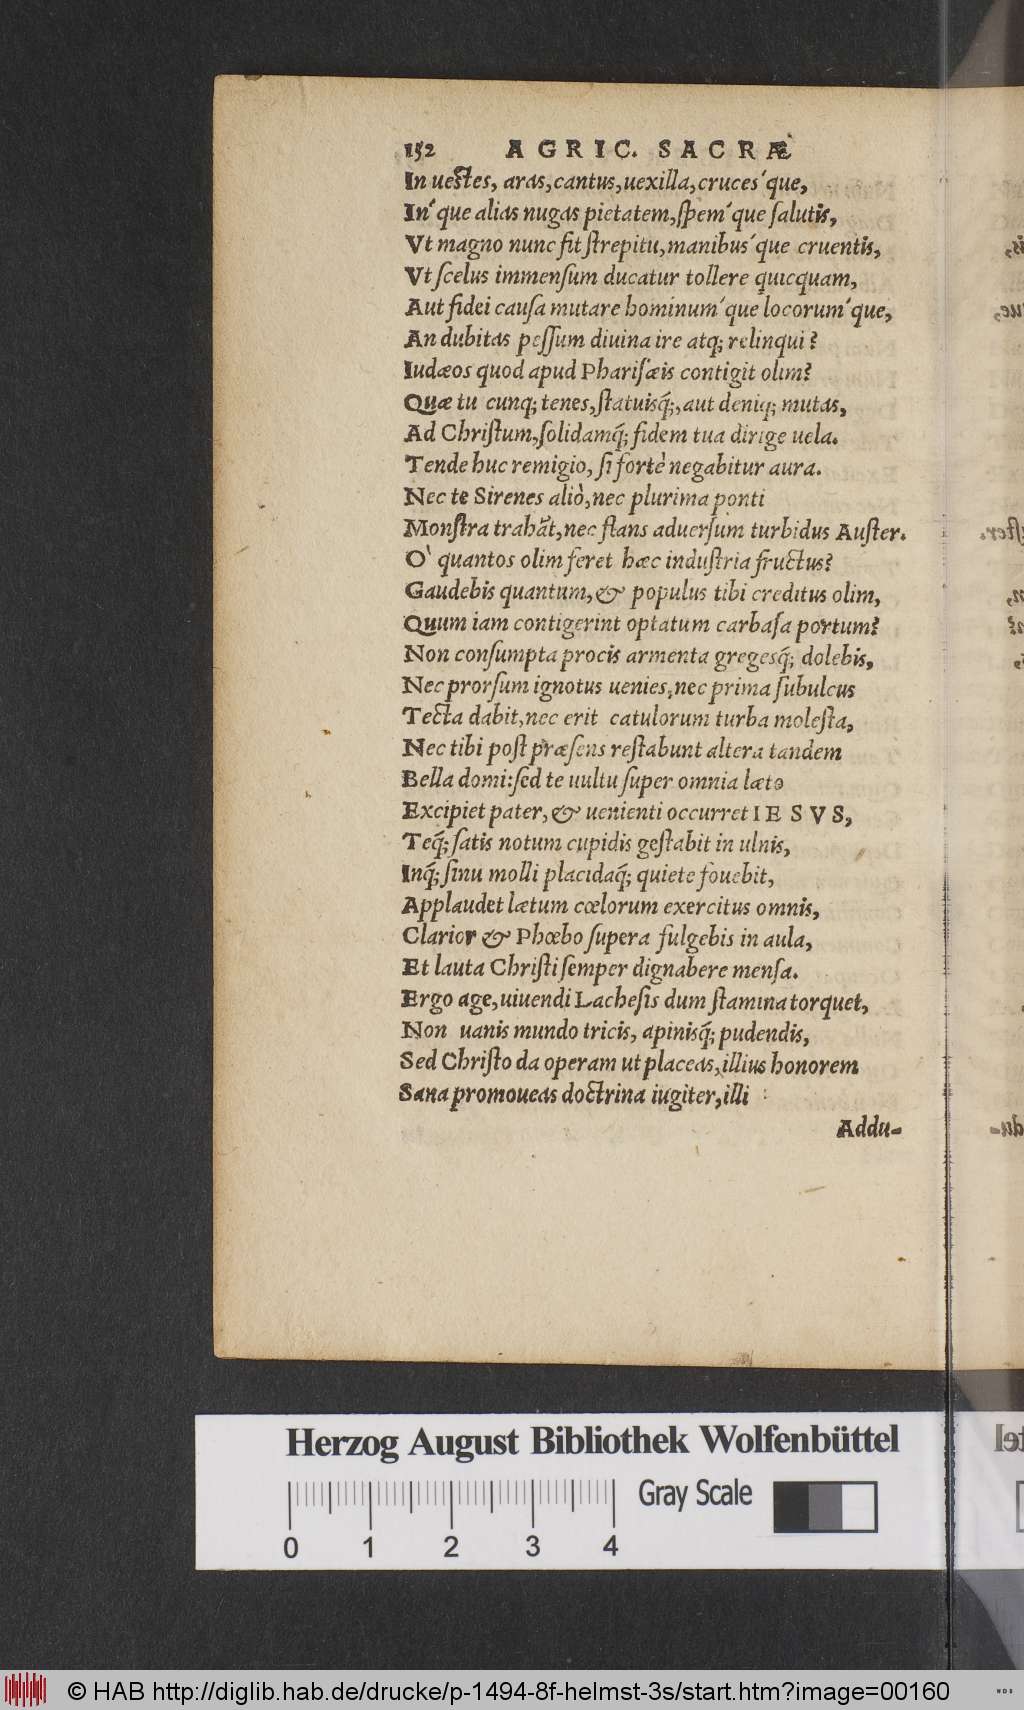 152 AGRIC. SACRÆ
In uestes, aras, cantus, uexilla, cruces´que,
In´que alias nugas pietatem, ſpem´que ſalutis,
Vt magno nunc fit ſtrepitu, manibus´que cruentis,
Vt ſcelus immenſum ducatur tollere quicquam,
Aut fidei cauſa mutare hominum´que locorum´que,
An dubitas peſſum diuina ire atq; relinqui?
Iudæos quod apud Phariſæis contigit olim?
Quæ tu cunq; tenes, ſtatuisq́;, aut deniq; mutas,
Ad Chriſtum, ſolidamq́; fidem tua dirige uela.
Tende huc remigio, ſi fortè negabitur aura.
Nec te Sirenes aliò, nec plurima ponti
Monſtra trahāt, nec ſtans aduerſum turbidus Auſter.
O` quantos olim feret hæc induſtria fructus?
Gaudebis quantum, & populus tibi creditus olim,
Quum iam contigerint optatum carbaſa portum?
Non conſumpta procis armenta gregesq́; dolebis,
Nec prorſum ignotus uenies, nec prima ſubulcus
Tecta dabit, nec erit catulorum turba moleſta,
Nec tibi poſt præſens reſtabunt altera tandem
Bella domi: ſed te uultu ſuper omnia læto
Excipiet pater, & uenienti occurret IESVS,
Teq́; ſatis notum cupidis geſtabit in ulnis,
Inq́; ſinu molli placidaq́; quiete fouebit,
Applaudet lætum cœlorum exercitus omnis,
Clarior & Phœbo ſupera fulgebis in aula,
Et lauta Chriſti ſemper dignabere menſa.
Ergo age, uiuendi Lacheſis dum ſtamina torquet,
Non uanis mundo tricis, apinisq́; pudendis,
Sed Chriſto da operam ut placeas, illius honorem
Sana promoueas doctrina iugiter, illi
Addu-
Herzog August Bibliothek Wolfenbüttel
Gray Scale
0 1 2 3 4
© HAB http://diglib.hab.de/drucke/p-1494-8f-helmst-3s/start.htm?image=00160